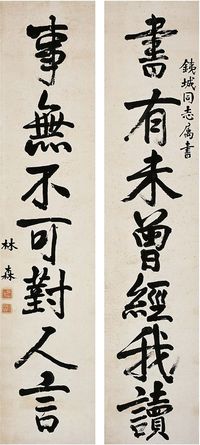 鐵城同志属書
書有未曾經我讀
事無不可對人言
林森